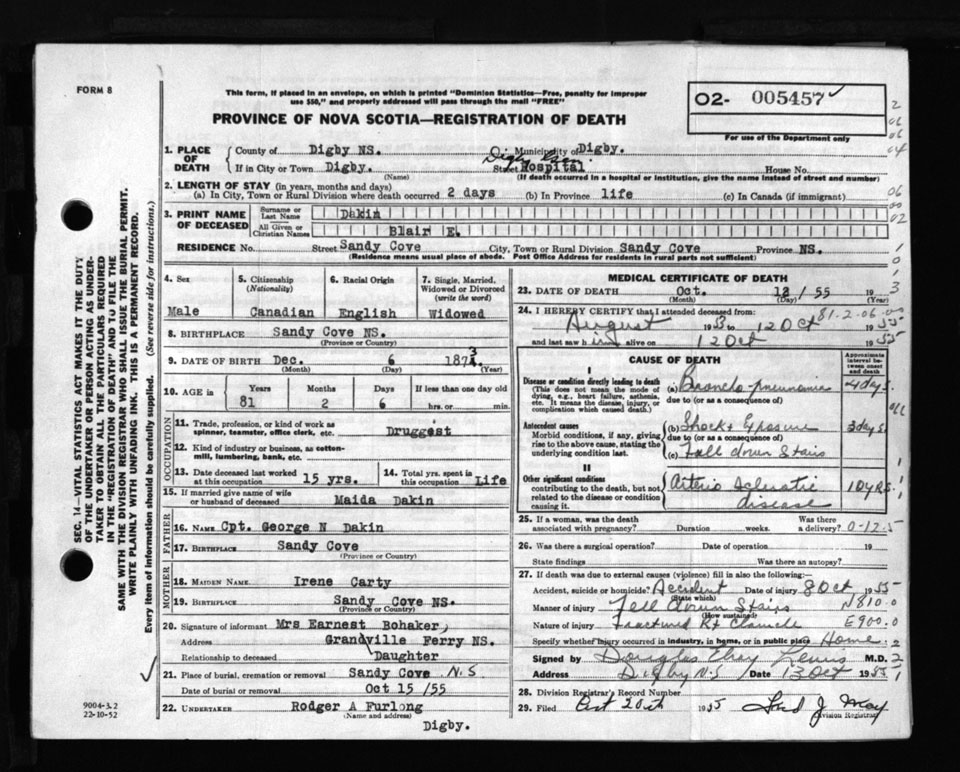 FORM 8
This form, if placed in an envelope, on which is printed "Dominion Statistics—Free, penalty for improper
use $50," and properly addressed will pass through the mail "FREE"
PROVINCE OF NOVA SCOTIA—REGISTRATION OF DEATH
O2- 005457 ✓
For use of the Department only
2
06
06
04
06
00
02
SEC. 14—VITAL STATISTICS ACT MAKES IT THE DUTY
OF THE UNDERTAKER OR PERSON ACTING AS UNDER-
TAKER TO OBTAIN ALL THE PARTICULARS REQUIRED
IN THE "REGISTRATION OF DEATH" AND TO FILE THE
SAME WITH THE DIVISION REGISTRAR WHO SHALL ISSUE THE BURIAL PERMIT.
WRITE PLAINLY WITH UNFADING INK. THIS IS A PERMANENT RECORD.
Every item of information should be carefully supplied. (See reverse side for instructions.)
1. PLACE OF DEATH
County of Digby NS. Or Municipality of Digby.
If in City or Town Digby. Street Digby Gen. Hospital House No.
(Name) (If death occurred in a hospital or institution, give the name instead of street and number)
2. LENGTH OF STAY (in years, months and days)
(a) In City, Town or Rural Division where death occurred 2 days (b) In Province life (c) In Canada (if immigrant)
3. PRINT NAME OF DECEASED
Surname or Last Name Dakin
All Given or Christian Names Blair E.
RESIDENCE No. Street Sandy Cove City, Town or Rural Division Sandy Cove Province NS.
(Residence means usual place of abode. Post Office Address for residents in rural parts not sufficient)
4. Sex 5. Citizenship (Nationality) 6. Racial Origin 7. Single, Married, Widowed or Divorced (write the word)
Male Canadian English Widowed
8. BIRTHPLACE Sandy Cove NS.
(Province or Country)
9. DATE OF BIRTH Dec. 6 1873
(Month) (Day) (Year)
10. AGE in Years Months Days If less than one day old
81 2 6 hrs. or min.
OCCUPATION
11. Trade, profession, or kind of work as
spinner, teamster, office clerk, etc. Druggest
12. Kind of industry or business, as cotton-
mill, lumbering, bank, etc.
13. Date deceased last worked at this occupation 15 yrs. 14. Total yrs. spent in this occupation Life
15. If married give name of wife
or husband of deceased Maida Dakin
FATHER
16. NAME Cpt. George N Dakin
17. BIRTHPLACE Sandy Cove
(Province or Country)
MOTHER
18. MAIDEN NAME Irene Carty
19. BIRTHPLACE Sandy Cove NS.
(Province or Country)
20. Signature of informant Mrs Earnest Bohaker,
Address Grandville Ferry NS.
Relationship to deceased Daughter
21. Place of burial, cremation or removal Sandy Cove N.S
Date of burial or removal Oct 15 /55
22. UNDERTAKER Rodger A Furlong
(Name and address)
Digby.
9004-3.2
22-10-52
MEDICAL CERTIFICATE OF DEATH
23. DATE OF DEATH Oct. 12 /55 19
(Month) (Day) (Year)
24. I HEREBY CERTIFY that I attended deceased from:
August 1953 to 12 Oct 1955
and last saw him alive on 12 Oct 1955
CAUSE OF DEATH
Approximate interval between onset and death
I
Disease or condition directly leading to death
(This does not mean the mode of
dying, e.g., heart failure, asthenia,
etc. It means the disease, injury, or
complication which caused death.)
(a) Broncho pneumonia 4 days.
due to (or as a consequence of)
Antecedent causes
Morbid conditions, if any, giving
rise to the above cause, stating the
underlying condition last.
(b) Shock & Exposure 3 days.
due to (or as a consequence of)
(c) Fall down Stairs
II
Other significant conditions
contributing to the death, but not
related to the disease or condition
causing it.
Arterio Sclerotic 10 yrs.
disease
25. If a woman, was the death
associated with pregnancy? Duration weeks Was there a delivery?
0-12-5
26. Was there a surgical operation? Date of operation 19
State findings Was there an autopsy?
27. If death was due to external causes (violence) fill in also the following:—
Accident, suicide or homicide? Accident Date of injury 8 Oct 1955
(State which)
Manner of injury Fell down Stairs N810.0
(How sustained)
Nature of injury Fractured Rt Clavicle E900.0
Specify whether injury occurred in industry, in home, or in public place Home
Signed by Douglas Lewis M.D.
Address Digby N.S Date 13 Oct 1955
28. Division Registrar's Record Number
29. Filed Oct 20th 1955
Division Registrar